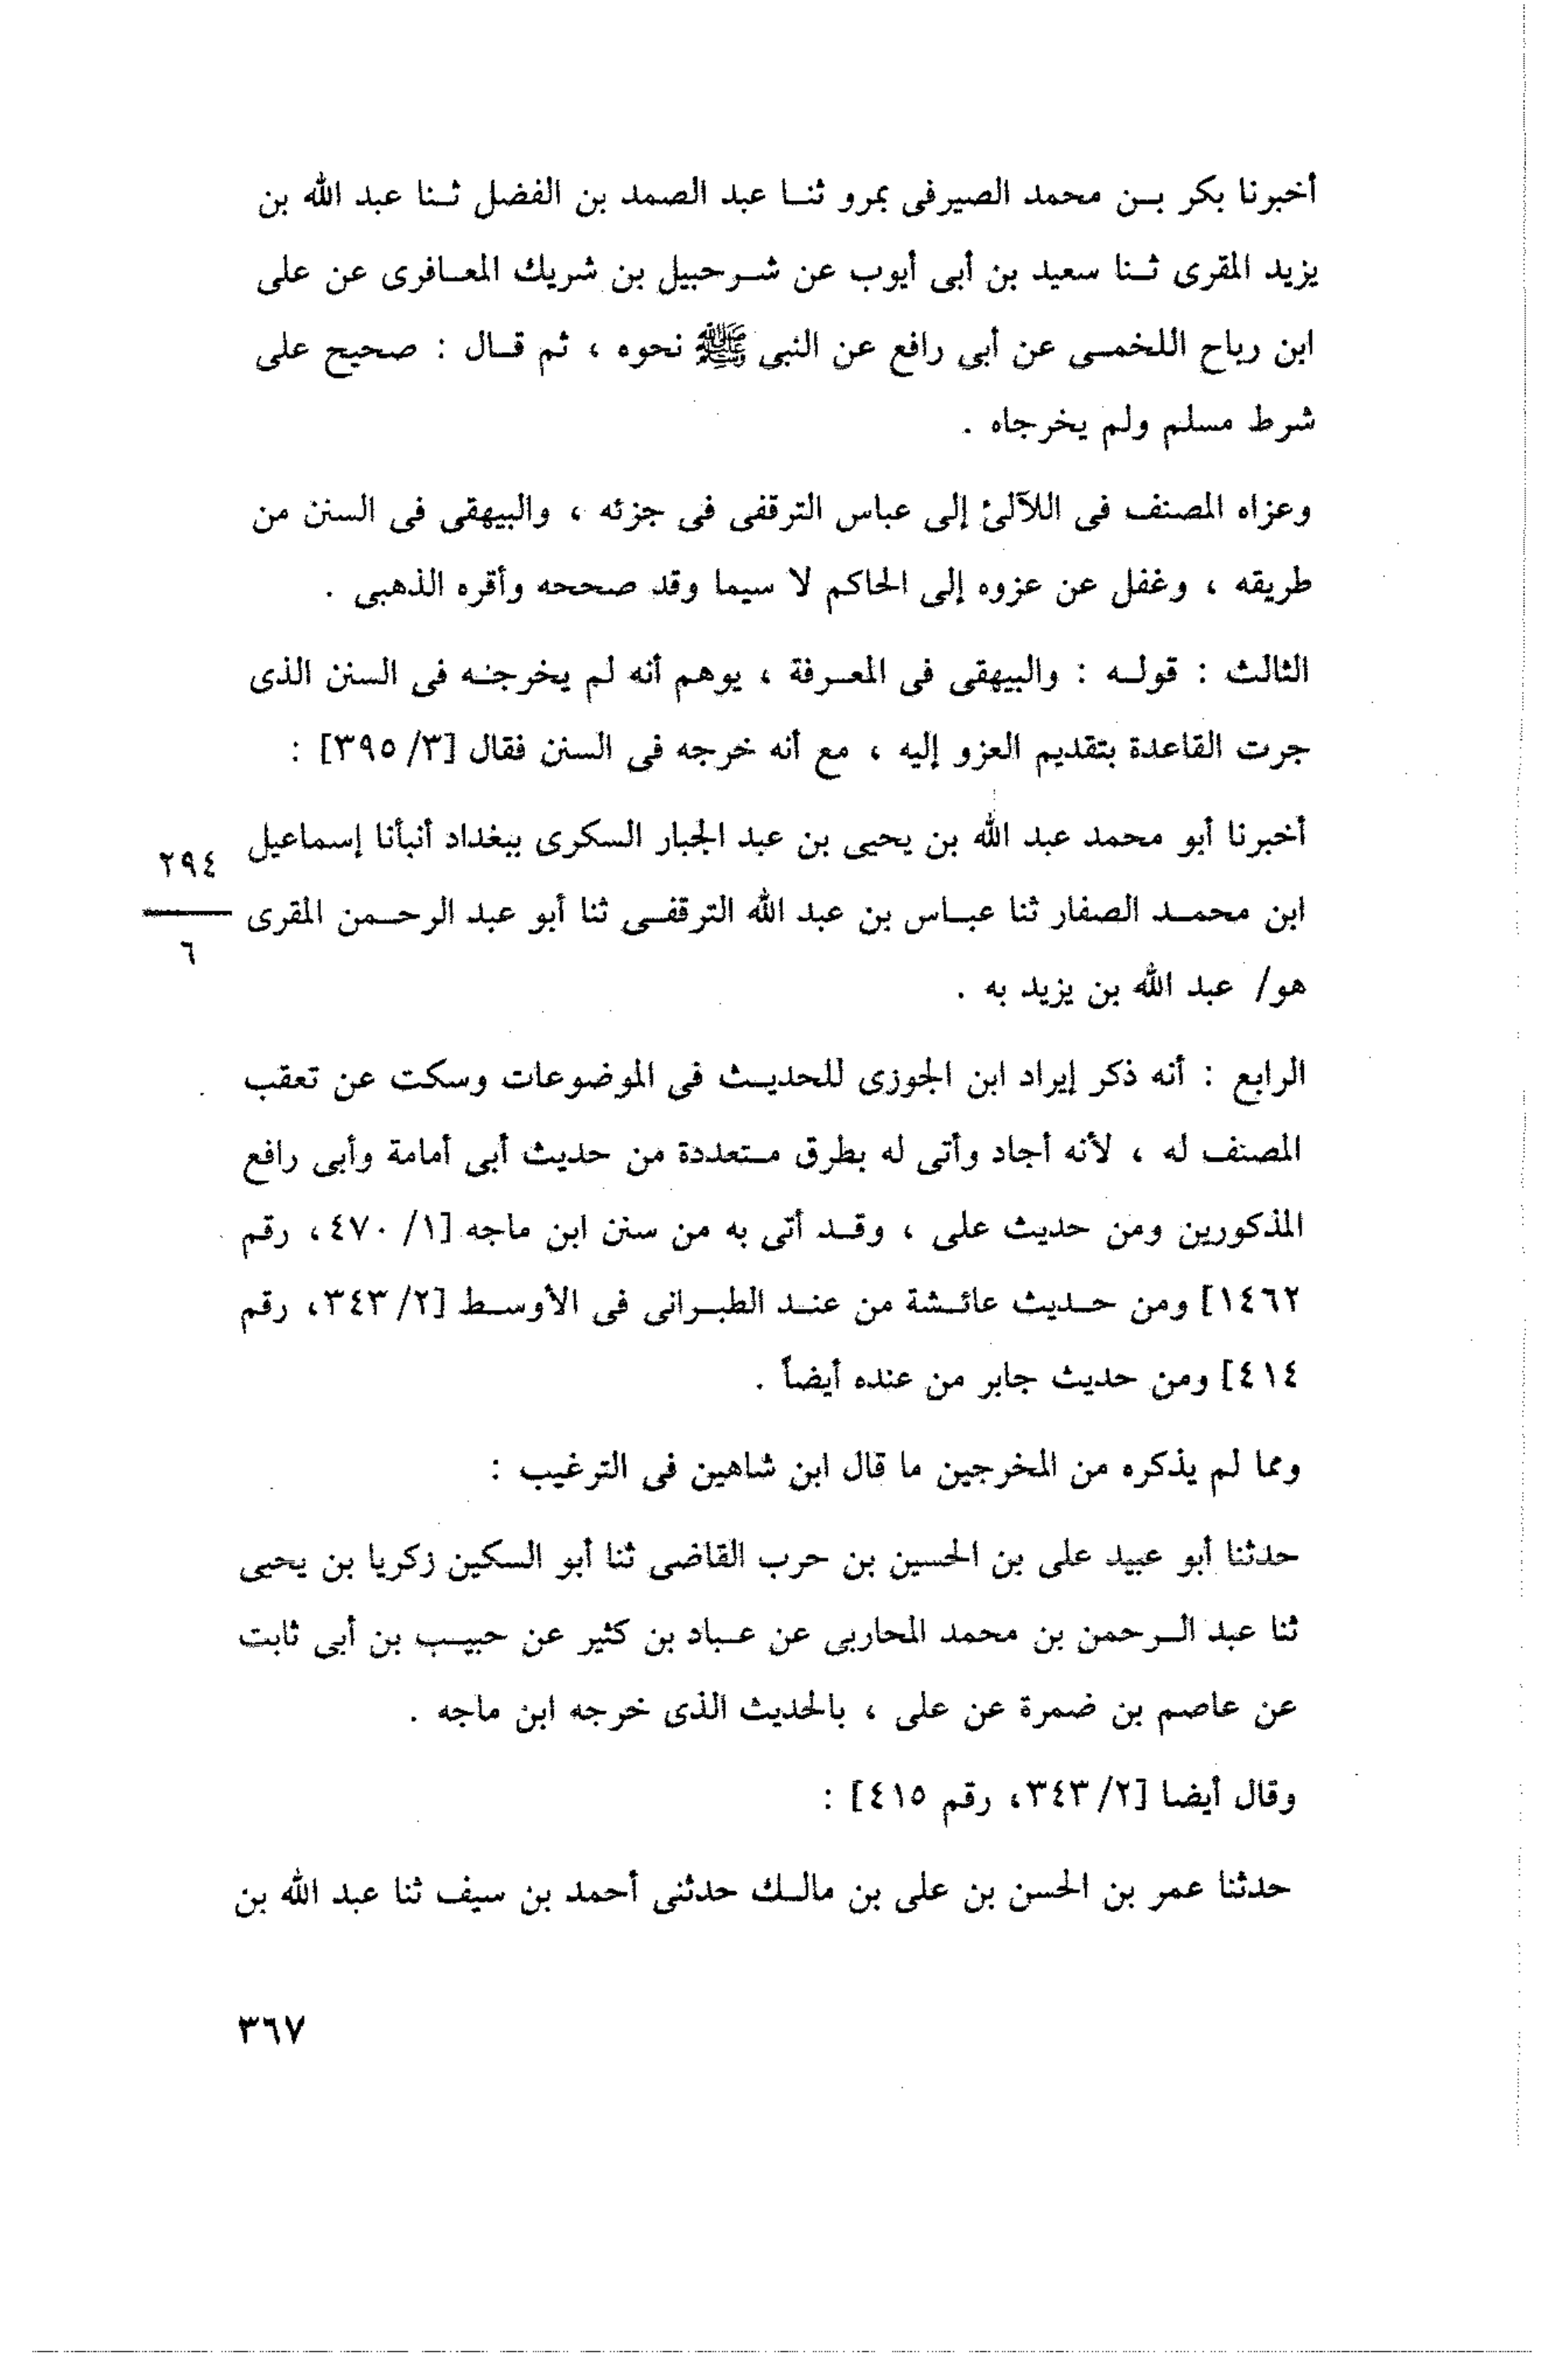 أخبرنا بكر بن محمد الصيرفى بمرو ثنا عبد الصمد بن الفضل ثنا عبد الله بن
يزيد المقرى ثنا سعيد بن أبى أيوب عن شرحبيل بن شريك المعافرى عن على
ابن رباح اللخمى عن أبى رافع عن النبى ﷺ نحوه ، ثم قال : صحيح على
شرط مسلم ولم يخرجاه .
وعزاه المصنف فى اللآلئ إلى عباس الترقفى فى جزئه ، والبيهقى فى السنن من
طريقه ، وغفل عن عزوه إلى الحاكم لا سيما وقد صححه وأقره الذهبى .
الثالث : قوله : والبيهقى فى المعرفة ، يوهم أنه لم يخرجه فى السنن الذى
جرت القاعدة بتقديم العزو إليه ، مع أنه خرجه فى السنن فقال [٣/ ٣٩٥] :
أخبرنا أبو محمد عبد الله بن يحيى بن عبد الجبار السكرى ببغداد أنبأنا إسماعيل
٢٩٤
ابن محمد الصفار ثنا عباس بن عبد الله الترقفى ثنا أبو عبد الرحمن المقرى
٦
هو/ عبد الله بن يزيد به .
الرابع : أنه ذكر إيراد ابن الجوزى للحديث فى الموضوعات وسكت عن تعقب
المصنف له ، لأنه أجاد وأتى له بطرق متعددة من حديث أبى أمامة وأبى رافع
المذكورين ومن حديث على ، وقد أتى به من سنن ابن ماجه [١/ ٤٧٠، رقم
١٤٦٢] ومن حديث عائشة من عند الطبرانى فى الأوسط [٢/ ٣٤٣، رقم
٤١٤] ومن حديث جابر من عنده أيضاً .
ومما لم يذكره من المخرجين ما قال ابن شاهين فى الترغيب :
حدثنا أبو عبيد على بن الحسين بن حرب القاضى ثنا أبو السكين زكريا بن يحيى
ثنا عبد الرحمن بن محمد المحاربى عن عباد بن كثير عن حبيب بن أبى ثابت
عن عاصم بن ضمرة عن على ، بالحديث الذى خرجه ابن ماجه .
وقال أيضا [٢/ ٣٤٣، رقم ٤١٥] :
حدثنا عمر بن الحسن بن على بن مالك حدثنى أحمد بن سيف ثنا عبد الله بن
٣٦٧